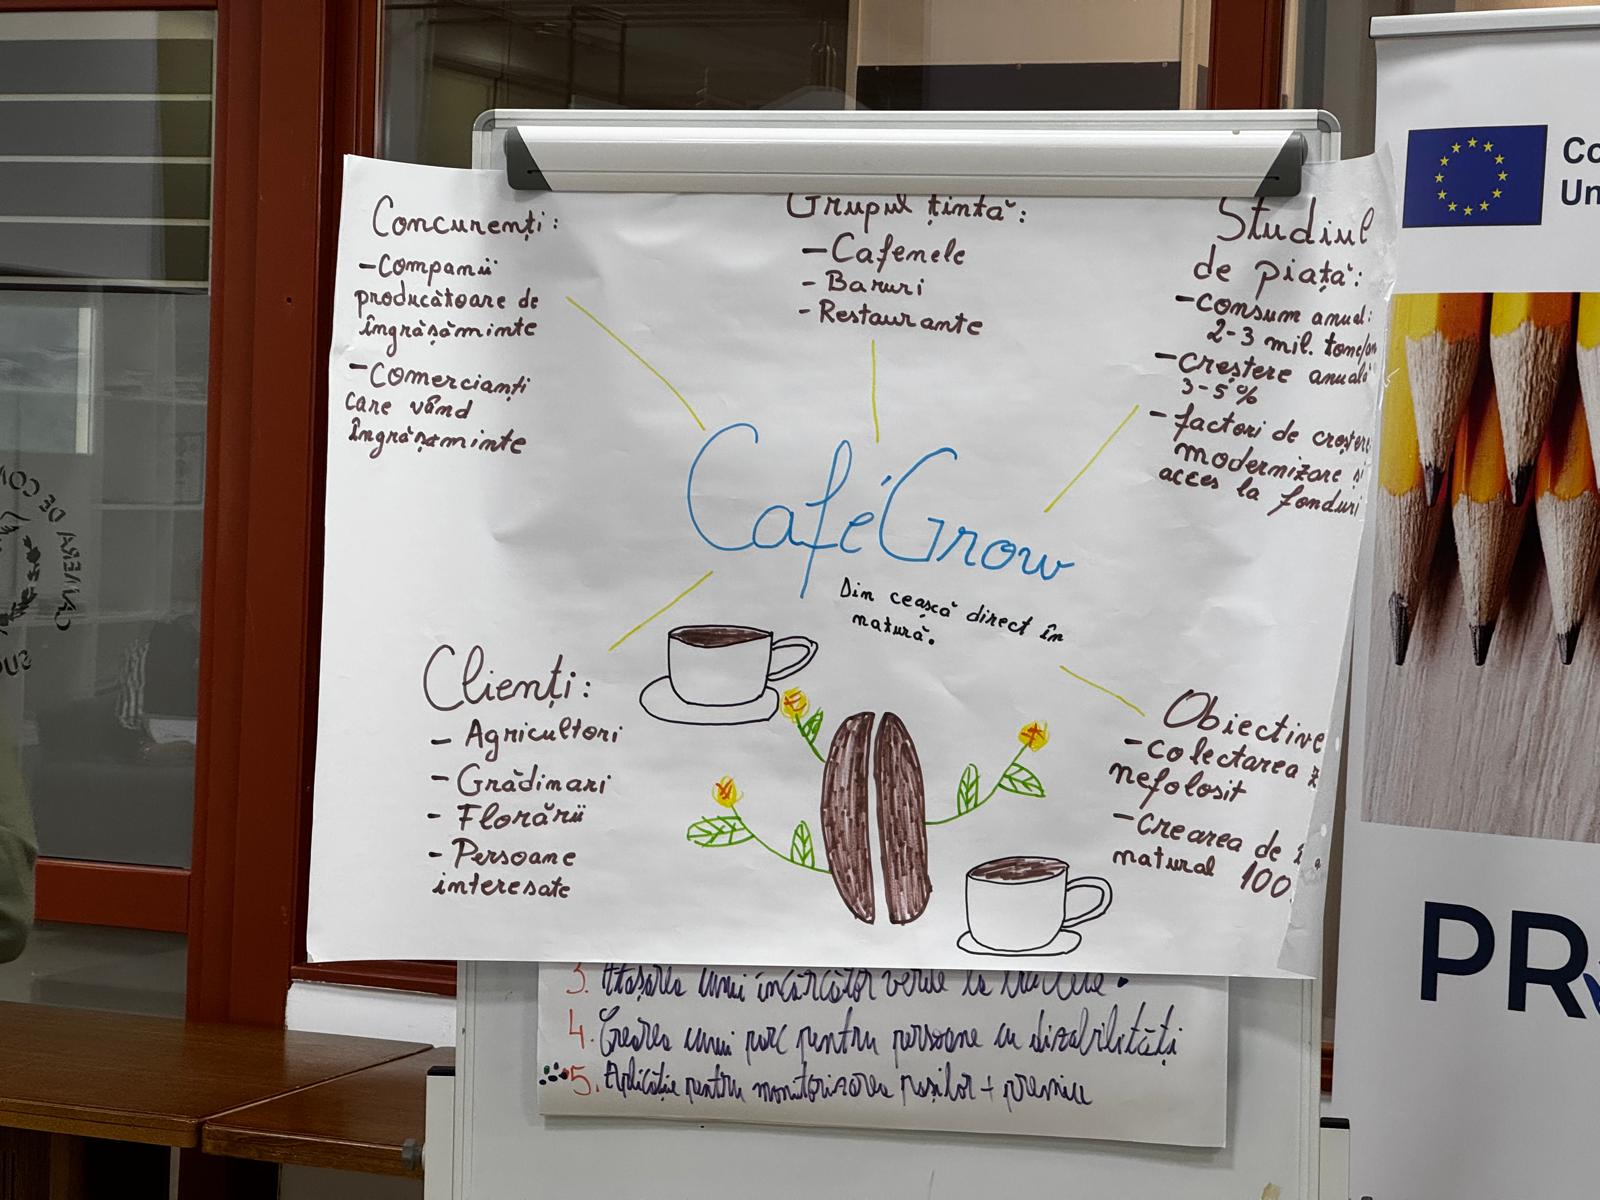 Concurenți:
- Companii
producătoare de
îngrășăminte
- Comercianți
care vând
îngrășaminte
Grupul țintă:
- Cafenele
- Baruri
- Restaurante
Studiul
de piață:
- Consum anual:
2-3 mil. tone/an
- creștere anuală
3-5%
- factori de creștere
modernizare și
acces la fonduri
Café'Grow
Din ceașcă direct în
natură.
Clienți:
- Agricultori
- Grădinari
- Florării
- Persoane
interesate
Obiective
- colectarea
nefolosit
- crearea de
natural 100
3. Atașarea unui încărcător verde la
4. Crearea unui parc pentru persoane cu dizabilități
5. Aplicație pentru monitorizarea pașilor + premiu
Co
Un
PR